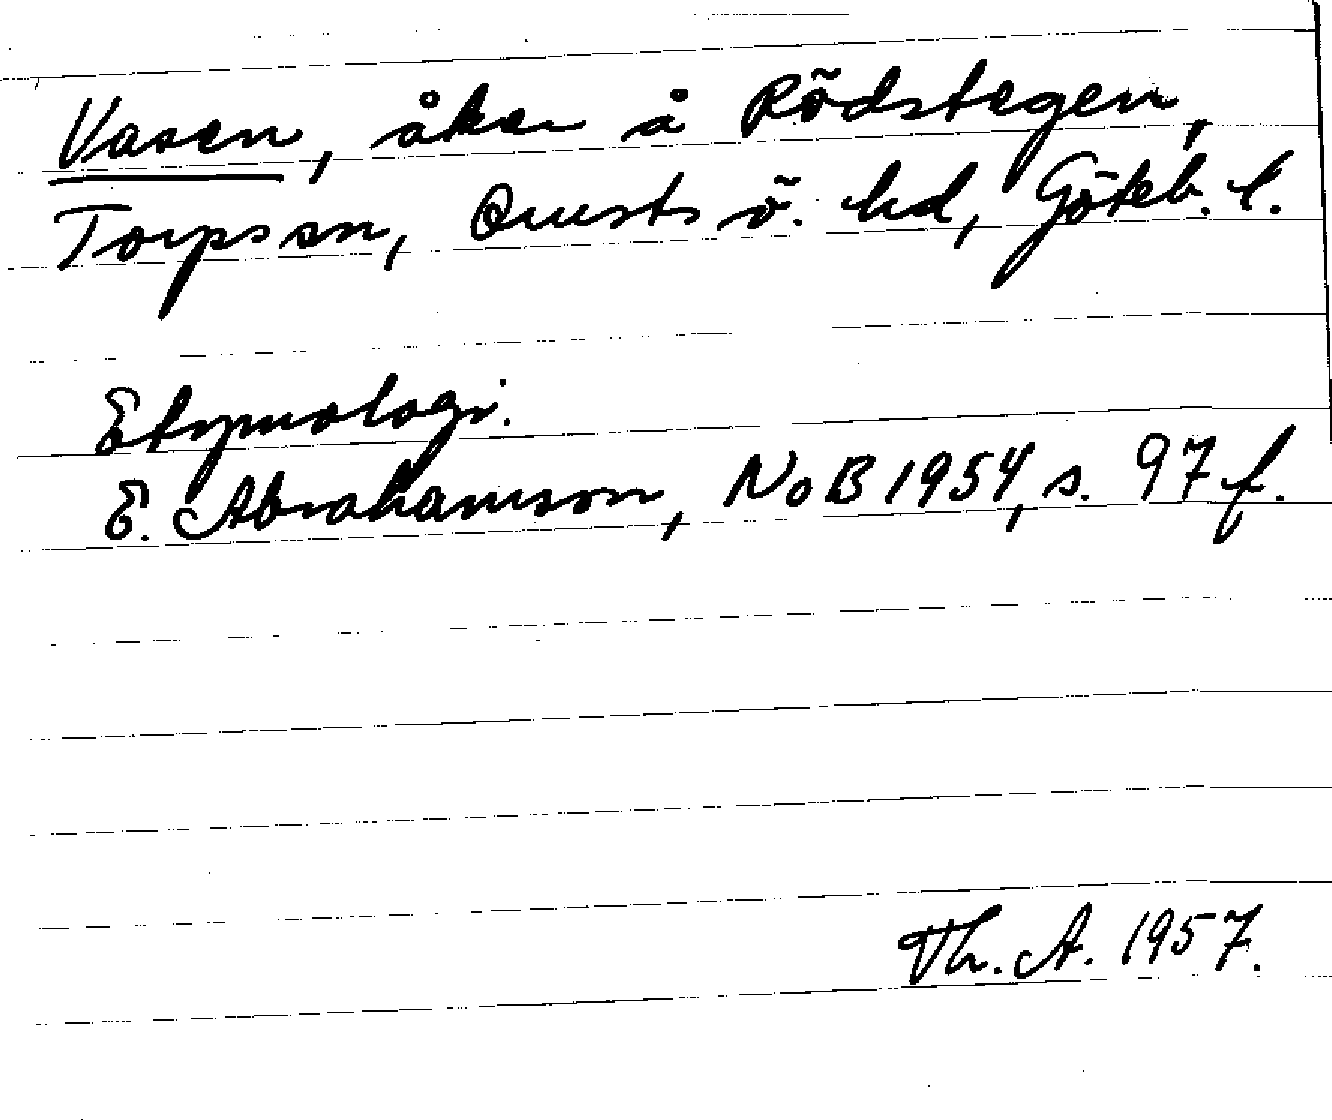 Vasen, åker å Rödstegen,
Torps sn, Orusts v. hd, Göteb. l.
Etymologi.
E. Abrahamson, NoB 1954, s. 97 f.
Th. A. 1957.